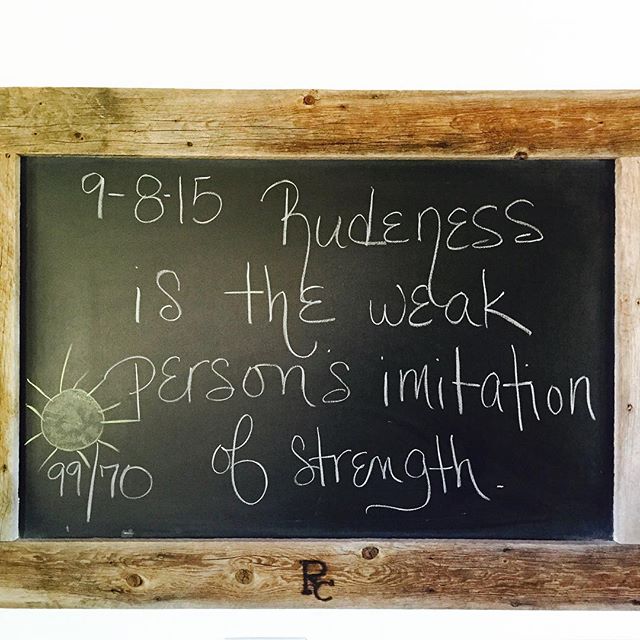 9-8-15 Rudeness
is the weak
person's imitation
of strength.
99/70
RC